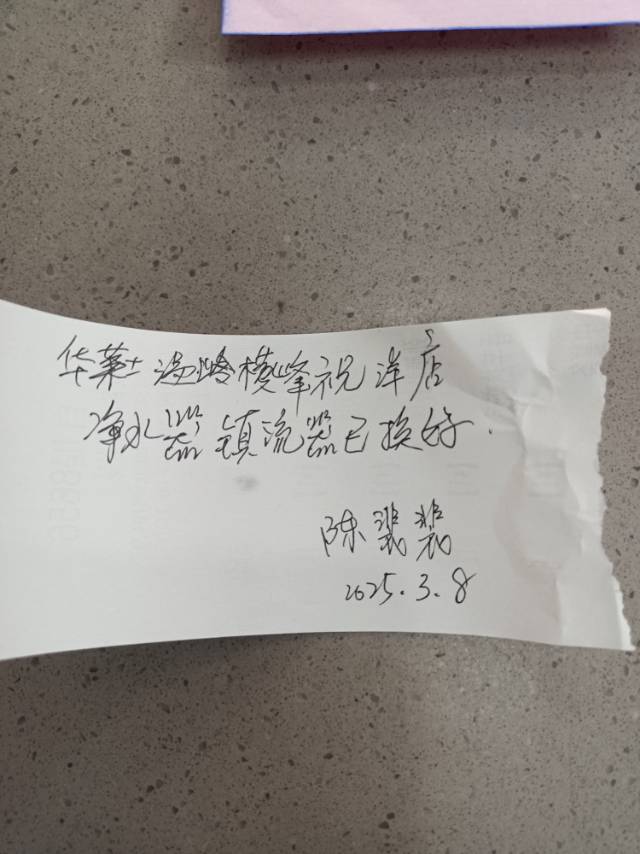 华莱士温岭横峰祝洋店
净水器镇流器已换好.
陈裴裴
2025.3.8